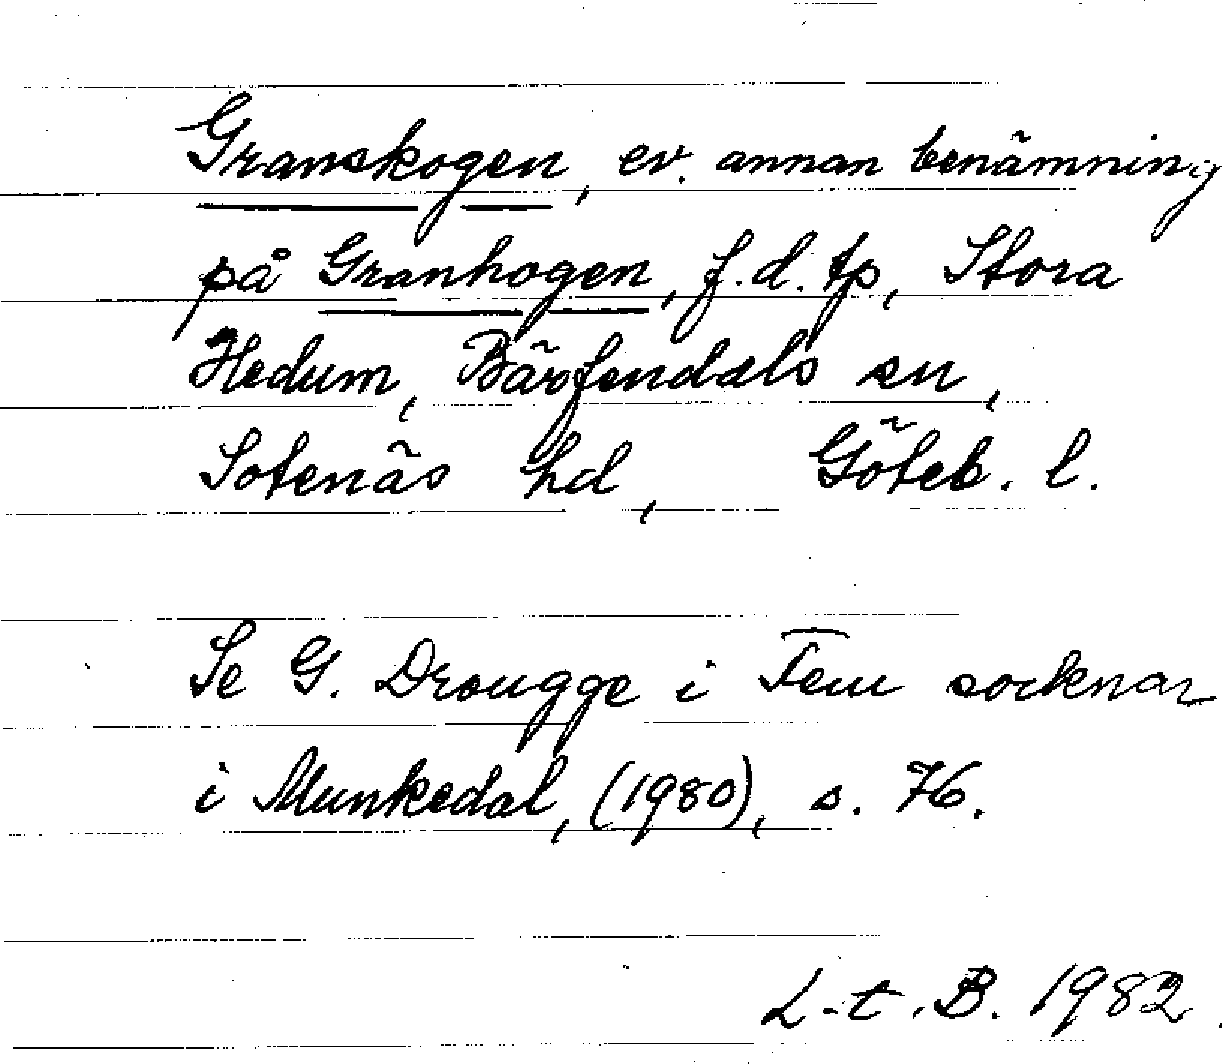 Granskogen, ev. annan benämning
på Granhogen, f.d. tp, Stora
Hedum, Bärfendals sn,
Sotenäs hd, Göteb. l.
Se G. Drougge i Fem socknar
i Munkedal, (1980), s. 76.
L-t. B. 1982